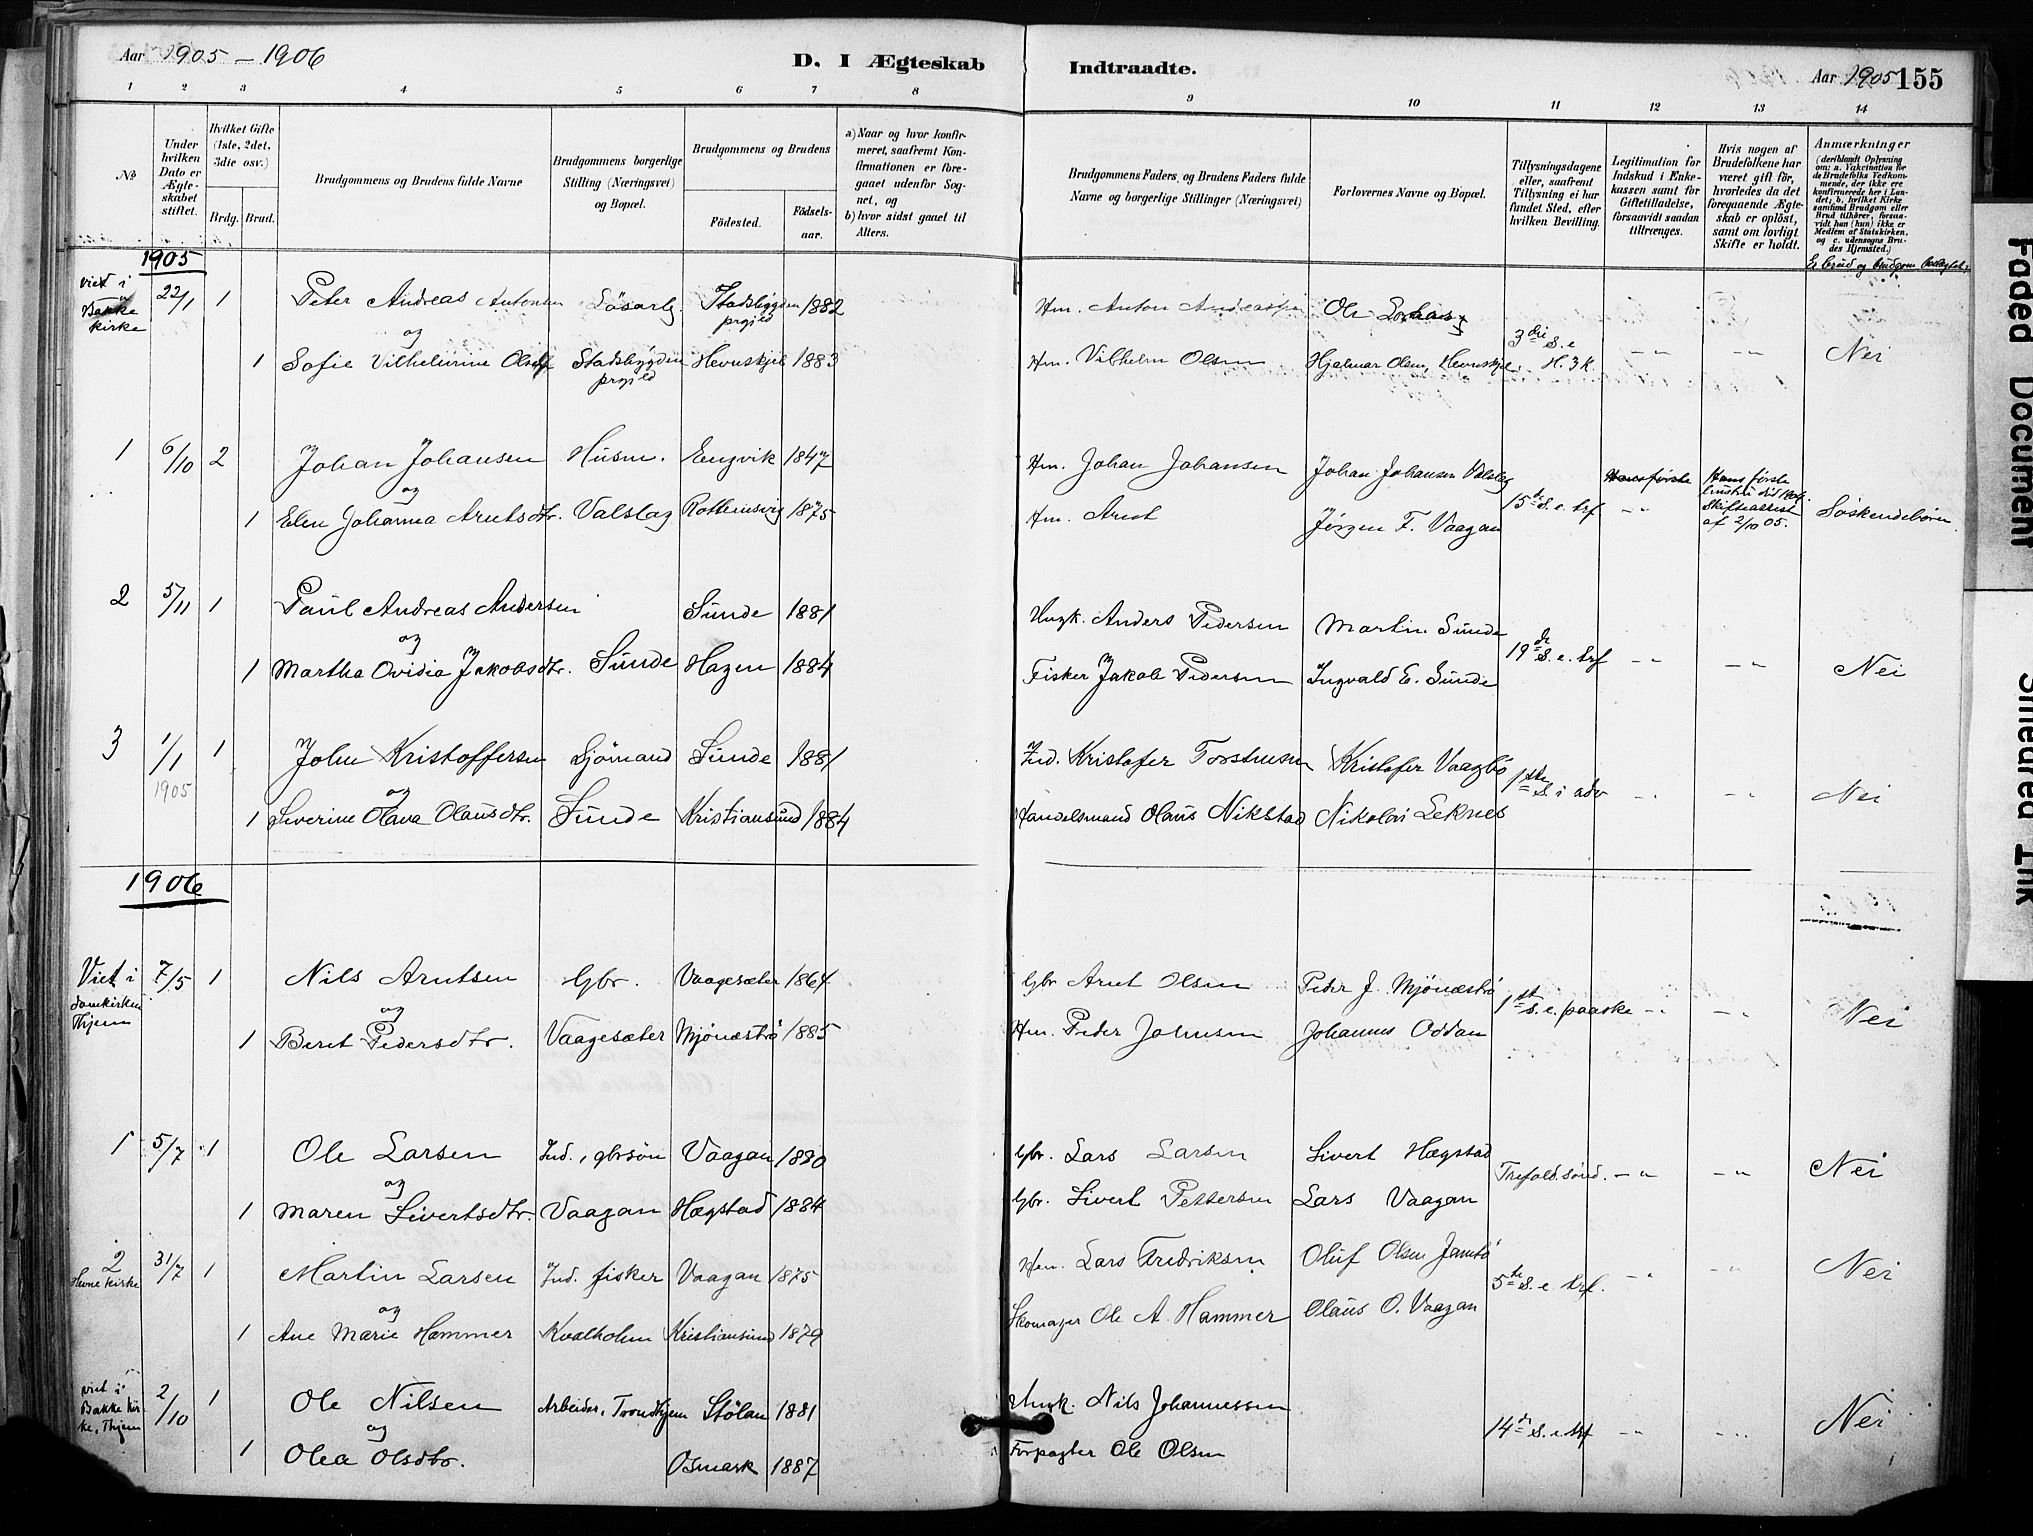 Aar 1905 – 1906
D. I Ægteskab Indtraadte.
Aar 1905 155
1 2 3 4 5 6 7 8 9 10 11 12 13 14
No
Under hvilken Dato er Ægteskabet stiftet.
Hvilket Gifte (1ste, 2det, 3die osv.)
Brdg. Brud.
Brudgommens og Brudens fulde Navne
Brudgommens borgerlige Stilling (Næringsvei) og Bopæl.
Brudgommens og Brudens
Födested. Födsels-aar.
a) Naar og hvor konfirmeret, saafremt Konfirmationen er foregaaet udenfor Sognet, og
b) hvor sidst gaaet til Alters.
Brudgommens Faders, og Brudens Faders fulde Navne og borgerlige Stillinger (Næringsvei)
Forlovernes Navne og Bopæl.
Tillysningsdagene eller, saafremt Tillysning ei har fundet Sted, efter hvilken Bevilling.
Legitimation for Indskud i Enkekassen samt for Giftetilladelse, forsaavidt saadan tiltrænges.
Hvis nogen af Brudefolkene har været gift för, hvorledes da det foregaaende Ægteskab er oplöst, samt om lovligt Skifte er holdt.
Anmærkninger
(deriblandt Oplysning om: a. Vakcination for de Brudefolks Vedkommende, der ikke ere konfirmerede her i Landet; b. hvilket Kirkesamfund Brudgom eller Brud tilhörer, forsaavidt han (hun) ikke er Medlem af Statskirken, og c. udensogns Brudes Hjemsted.)
Er brud og brudgom beslægtet?
1905
viet i Bakke kirke 22/1 1 Peter Andreas Antonsen Lösarb. Stadsbygden prgjld 1882 Hm. Anton Andersen Ole
og
1 Sofie Vilhelmine Olsdtr Stadsbygden prgjld Hevnskjel 1883 Hm. Vilhelm Olsen Hjalmar Olsen, Hevnskjel. 3die S. e H. 3 K. –"– –"– Nei
1 6/10 2 Johan Johansen Husm. Engvik 1847 Hm. Johan Johansen Johan Johansen Valslag
og
1 Elen Johanna Arntsdtr. Valslag 1875 Hm. Arnt Jörgen F. Vaagan 15de S. e. trf –"– Hans förste hustru död Skifteattest af 2/10 05. Söskendebörn.
2 5/11 1 Paul Andreas Andersen Sunde 1881 Ungk. Anders Pedersen Martin Sunde
og
1 Martha Ovidia Jakobsdtr. Sunde Hagen 1884 Fisker Jakob Pedersen Ingvald E. Sunde 19de S. e. trf –"– –"– Nei
3 1/1 1905 1 John Kristoffersen Sjömand Sunde 1881 Ind. Kristofer Torstensen Kristofer Vaagbö
og
1 Severine Olava Olausdtr. Sunde Kristiansund 1884 Handelsmand Olaus Nikstad Nikolai Leknes 1ste S. i adv –"– –"– Nei
1906
Viet i Domkirken Thjem 7/5 1 Nils Arntsen Gbr. Vaagesæter 1864 Gbr Arnt Olsen Peder J. Mjönæströ
og
1 Beret Pedersdtr. Vaagesæter Mjönæströ 1885 Hm. Peder Johnsen Johannes Oddan 1ste S. e. paaske –"– –"– Nei
1 5/7 1 Ole Larsen Ind., gbrsön Vaagan 1880 Gbr. Lars Larsen Sivert Hægstad
og
1 Maren Sivertsdtr. Vaagan Hægstad 1884 Gbr. Sivert Pettersen Lars Vaagan Trefold. sönd. –"– –"– Nei
2 Hevne kirke 31/7 1 Martin Larsen Ind. fisker Vaagan 1875 Hm. Lars Fredriksen Oluf Olsen Jamtö
og
1 Ane Marie Hammer Kvalholm Kristiansund 1879 Skomager Ole A. Hammer Olaus O. Vaagan 5te S. e. trf. –"– –"– Nei
viet i Bakke kirke, Thjem 2/10 1 Ole Nilsen Arbeider, Trondhjem Stölan 1881 Ungk. Nils Johannessen
og
1 Olea Olsdtr. Osmark 1887 Forpagter Ole Olsen 14de S. e trf –"– –"– Nei
Faded Document
Smeared Ink